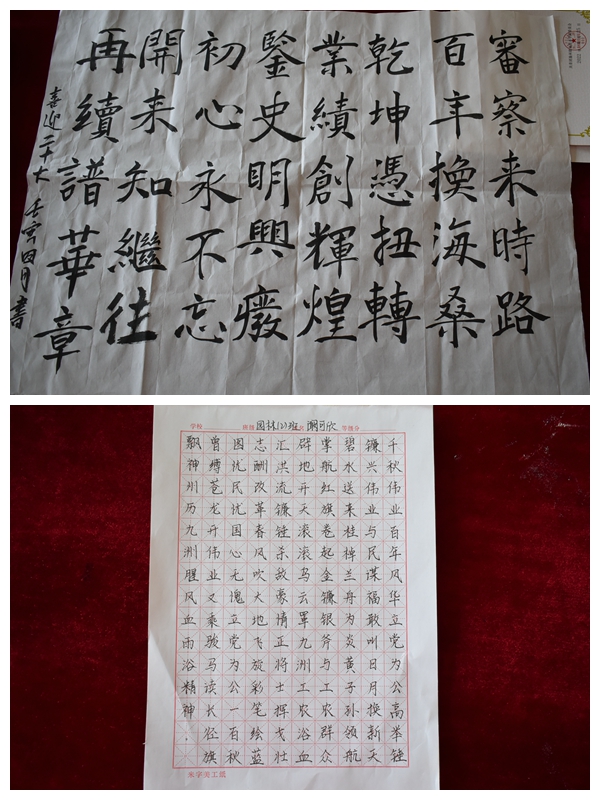 審察来時路
百年換海桑
乾坤憑扭轉
業績創輝煌
鍳史明興廢
初心永不忘
開来知繼往
再續譜華章
喜迎二十大 壬寅四月書
学校 班级 园林(2)班
等级分
千秋伟业百年风华立党为公高举锤
镰兴伟业与民谋福敢叫日月换新天
碧水送来桂棹兰舟为炎黄子孙领航
掌航红旗卷起金镰银斧与工农群众
辟地开天滚滚乌云罩九洲工农浴血
汇洪流镰锤杀敌豪情正将士挥戈壮
志酬改革春风吹大地飞旋彩笔绘蓝
图忧民忧国心无愧立党为公一百秋
曾缚苍龙开伟业又乘骏马读长径旗
飘神州历九洲腥风血雨浴精神.
米字美工纸